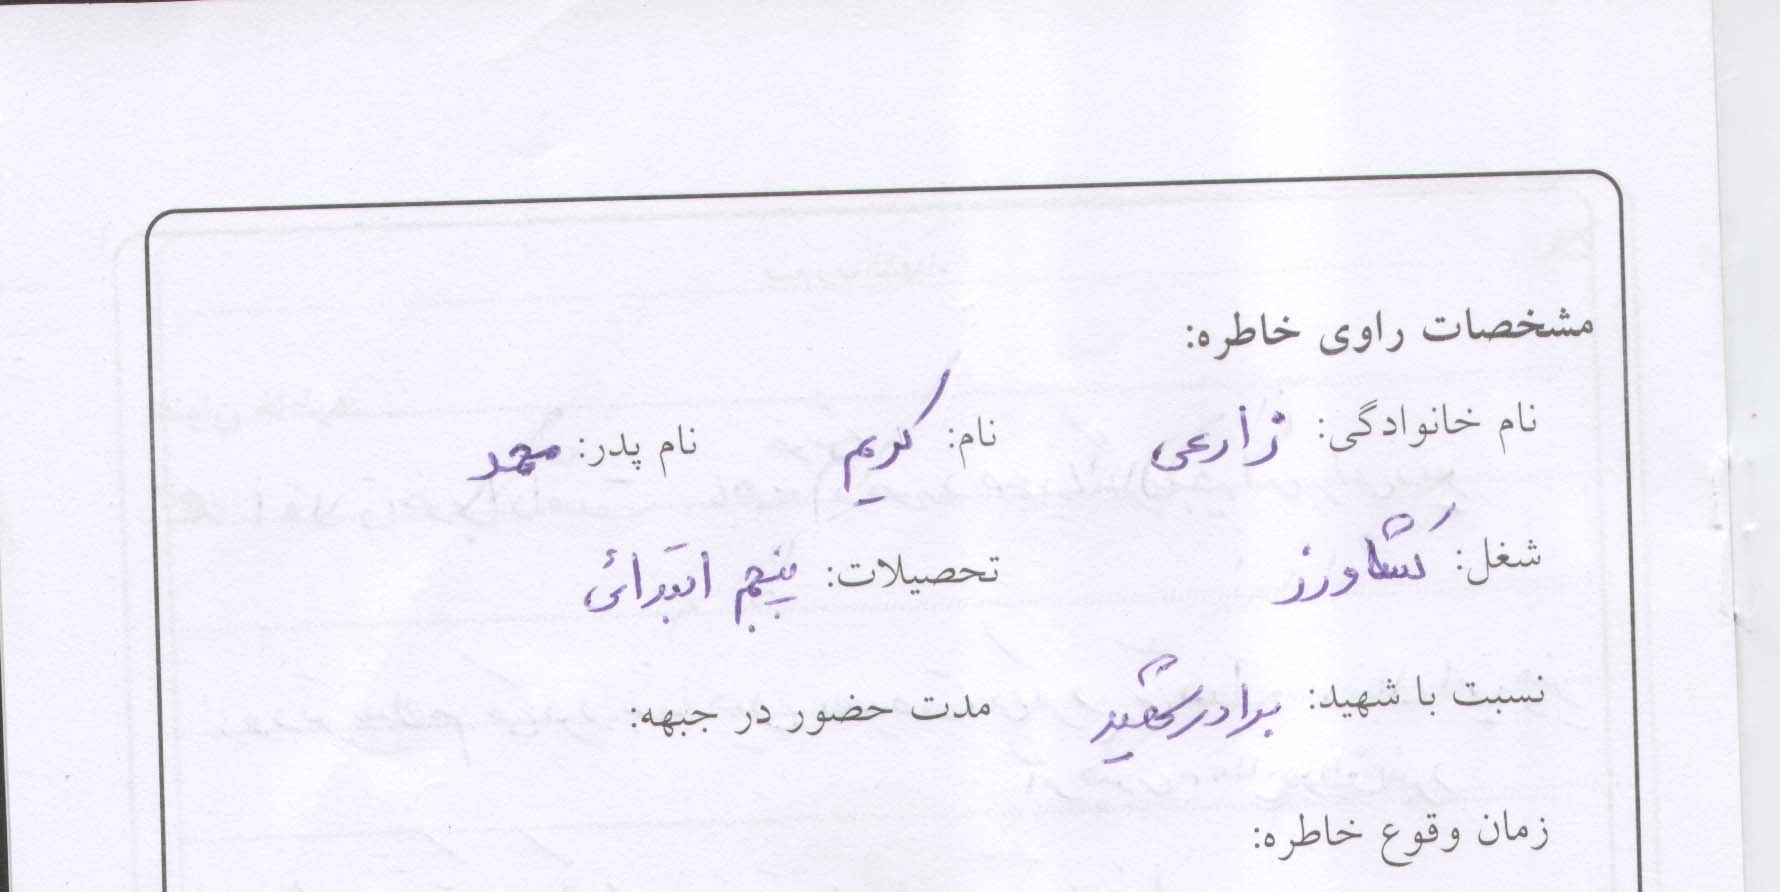 مشخصات راوی خاطره:
نام خانوادگی: زارعی نام: کریم نام پدر: محمد
شغل: کشاورز تحصیلات: پنجم ابتدائی
نسبت با شهید: برادر شهید مدت حضور در جبهه:
زمان وقوع خاطره: